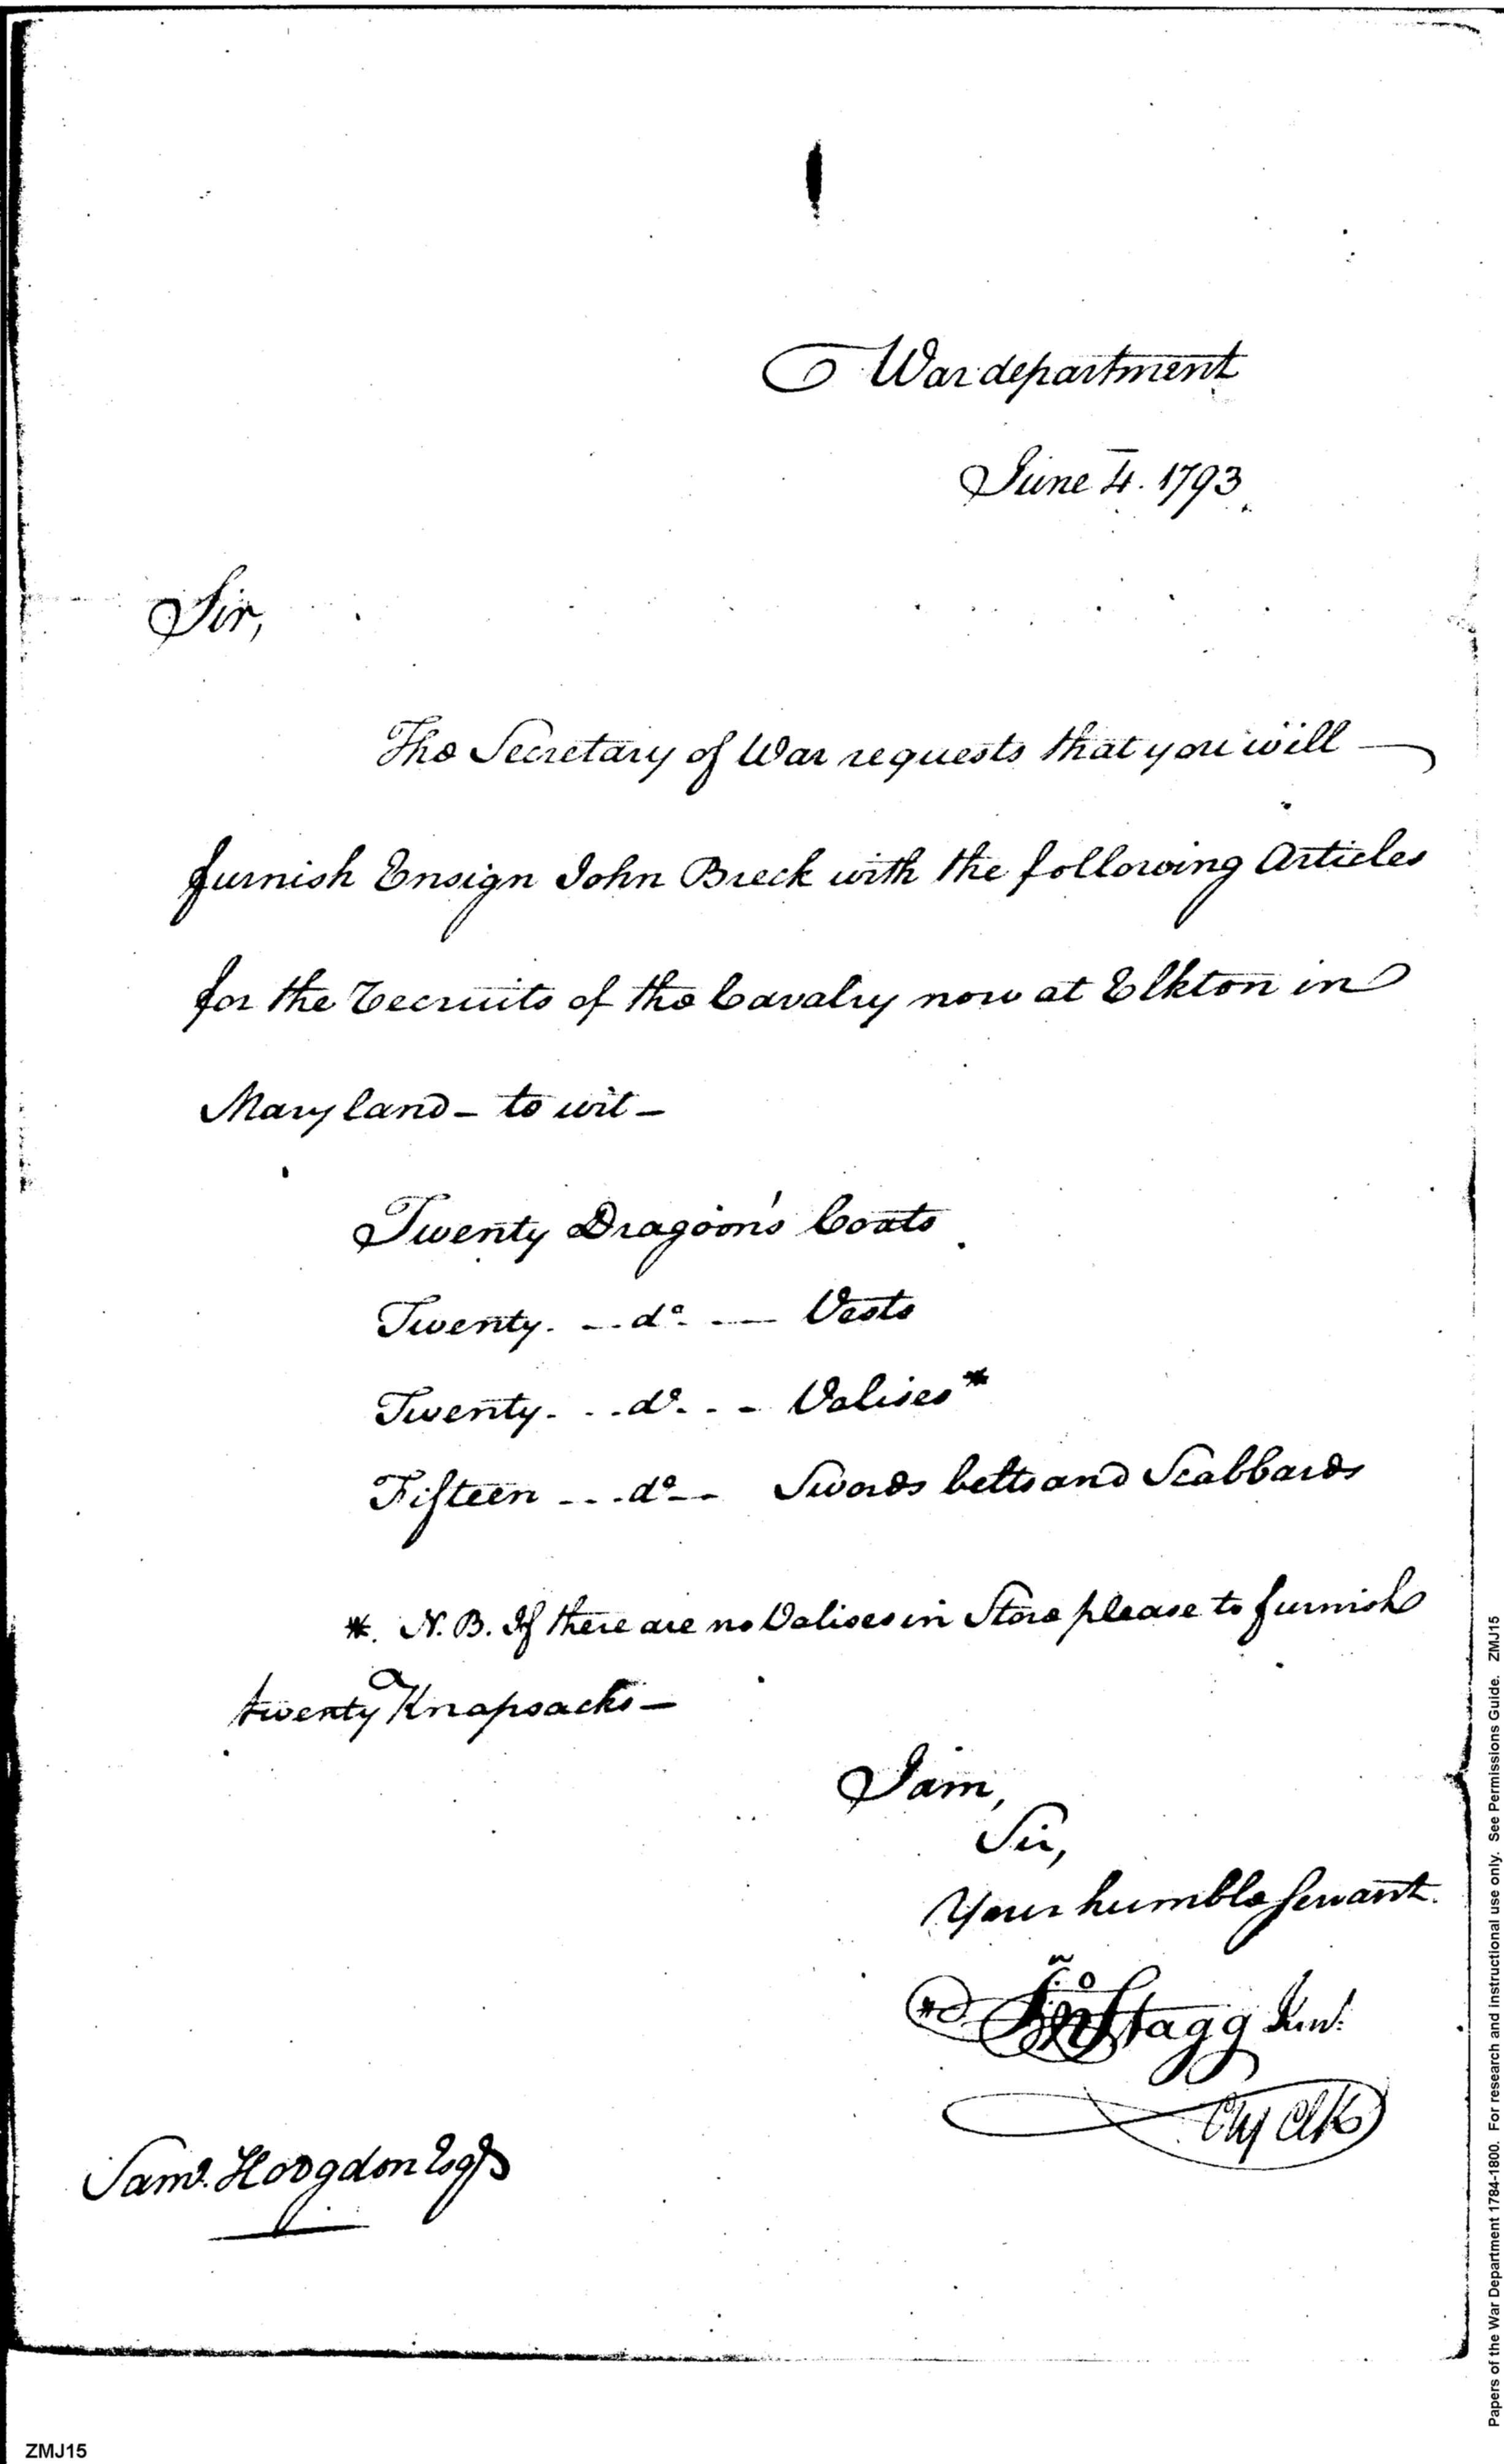 War department
June 4. 1793
Sir,
The Secretary of War requests that you will
furnish Ensign John Breck with the following Articles
for the Recruits of the Cavalry now at Elkton in
Maryland - to wit -
Twenty Dragoon's Coats
Twenty - do - Vests
Twenty - do - Valises*
Fifteen - do - Swords belts and Scabbards
* N.B. If there are no Valises in Store please to furnish
twenty Knapsacks -
I am,
Sir,
Your humble servant.
Jno Stagg Junr.
Ch Clk
Saml. Hodgdon Esqr
ZMJ15
Papers of the War Department 1784-1800. For research and instructional use only. See Permissions Guide. ZMJ15